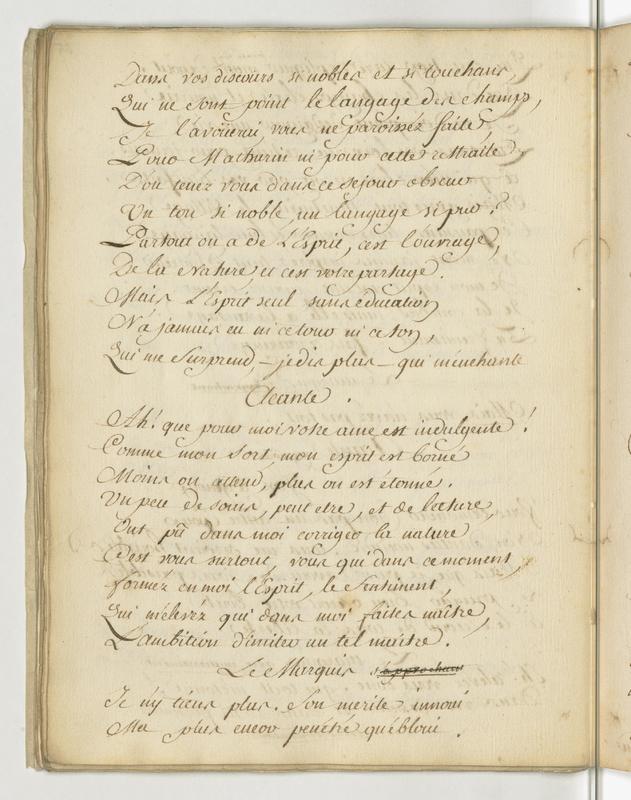 Dans vos discours si nobles et si touchans,
Qui ne sont point le langage des champs,
Je l'avouerai, vous ne paroissez faite,
Pour Mathurin ni pour cette rettraite
D'ou tenez vous dans ce sejour obscur
Un ton si noble, un langage si pur ?
Partout on a de L'Esprit, c'est l'ouvrage,
De la Nature et c'est votre partage.
Mais L'Esprit seul sans éducation
N'a jamais eu ni ce tour ni ce ton,
Qui me surprend, - je dis plus - qui m'enchante
Acante .
Ah! que pour moi votre ame est indulgente !
Comme mon sort, mon esprit est borné
Moins on attend, plus on est étonné.
Un peu de soins, peut etre, et de lecture,
Ont pû dans moi corriger la nature
C'est vous surtout, vous qui dans ce moment,
formez en moi l'Esprit, le Sentiment,
Qui m'elevez qui dans moi faites naître,
L'ambition d'imiter un tel maître.
Le Marquis s'approchant
Je n'y tiens plus. Son merite innoui
M'a plus encor penétré qu'ébloui .